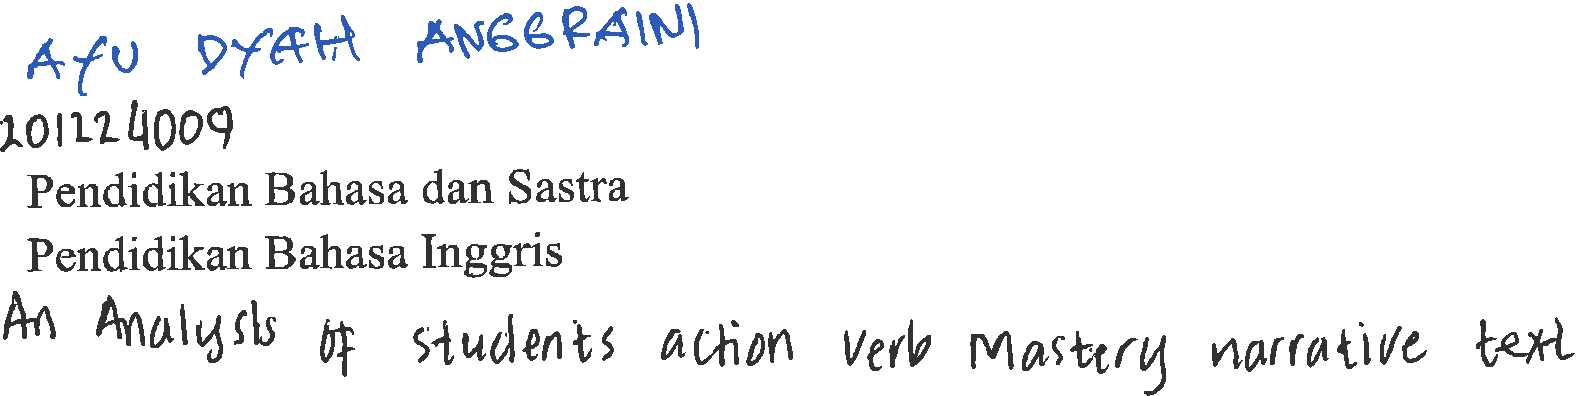 AYU DYAH ANGGRAINI
201224009
Pendidikan Bahasa dan Sastra
Pendidikan Bahasa Inggris
An Analysis of students action verb Mastery narrative text